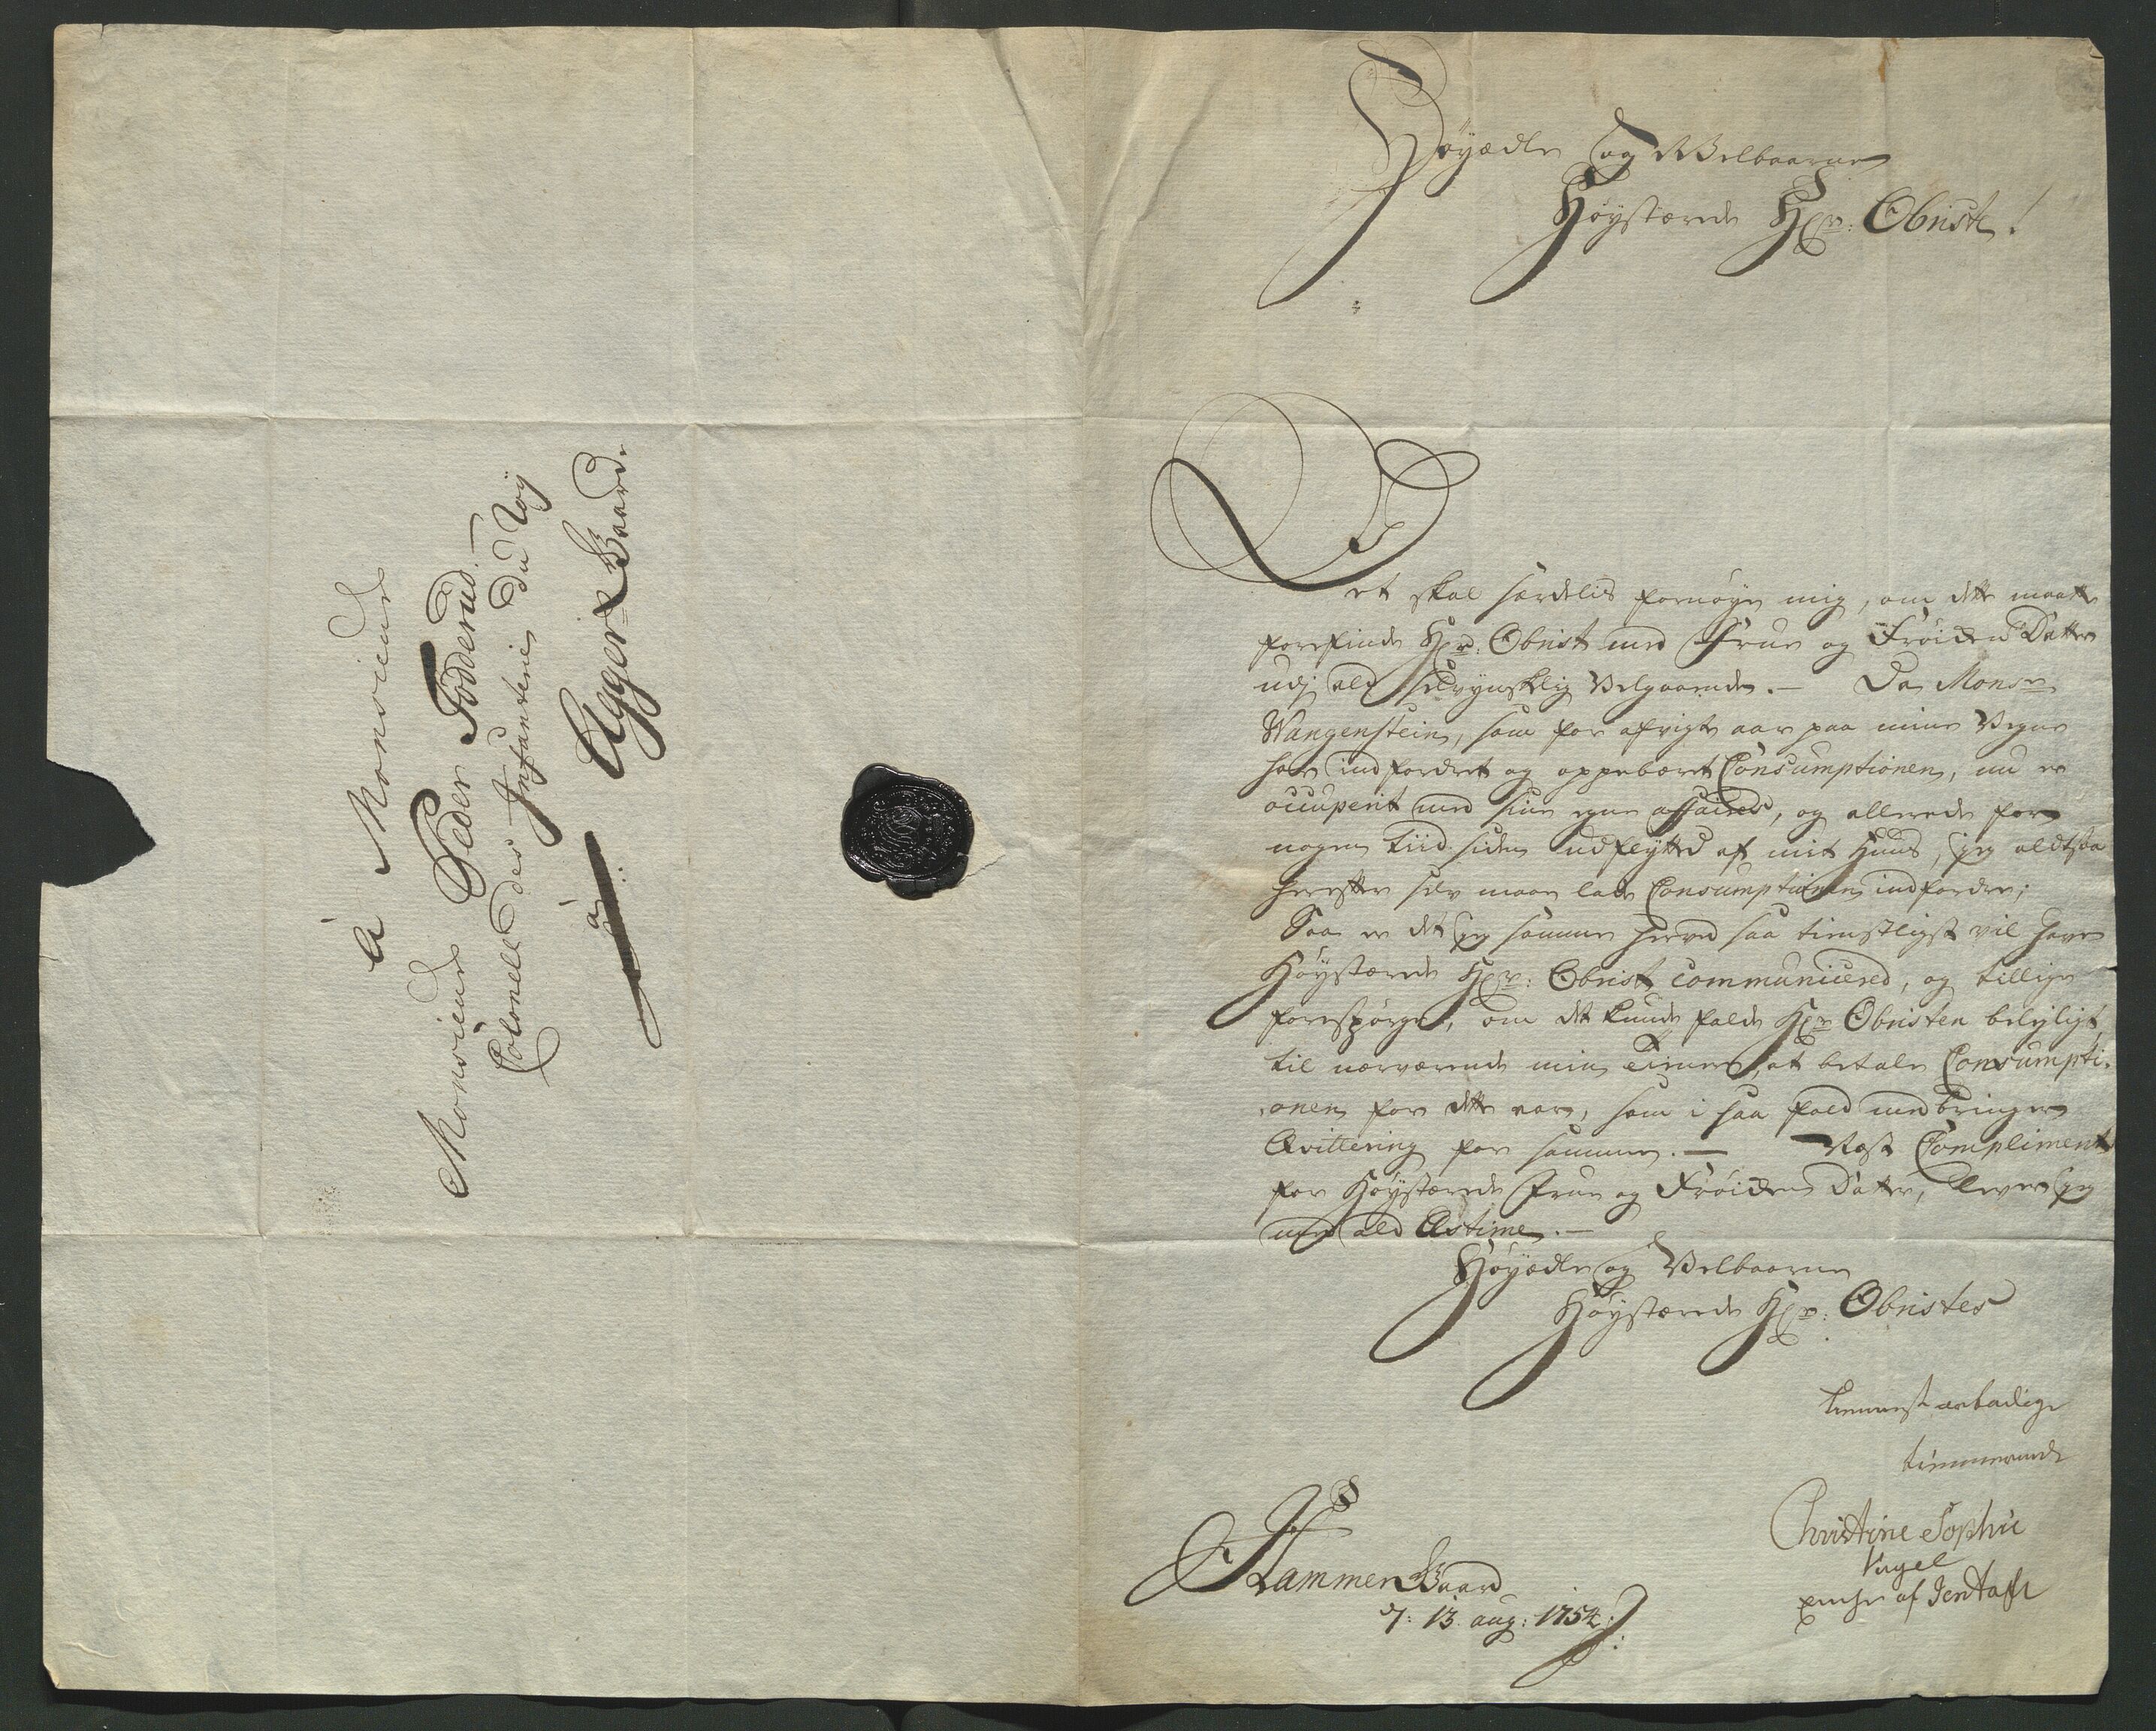 à Monsieur
Monsieur Peder Toderud.
Colonell des Infanterie du Roy
à Agger Gaard.
Høyædle og Welbaarne
Høystærede Hr: Obriste!
Det skal særdelis fornøye mig, om dette maatte
forefinde Hr: Obrist med Frue og Frøiden Datter
udj ald selvynsklig Velgaaende.— Da Monsr
Wangenstein, som for afvigte aar paa mine Vegne
har indfordret og oppebæret Consumptionen, nu er
occuperit med sine egne affaires, og allerede for
nogen Tiid siden udflytted af mit Huus, jeg altsaa
herefter selv maae lade Consumptionen indfordre;
Saa er det jeg samme herved saa tienstligst vil have
Høystærede Hr: Obrist communicered, og tillige
forespørge, om det kunde falde Hr Obristen belejligt,
til nærværende min Tiener, at betale Consumpti-
onen for dette aar, som i saa fald medbringer
Qvittering for samme.— Næst Compliment
for Høystærede Frue og Frøiden Datter, lever jeg
med ald Estime.—
Høyædle og Velbaarne
Høystærede Hr: Obristes
tienst ærbødige
tiennerinde
Christine Sophie
Hagel
enche af Jentoft
Hammer Gaard
d: 13 aug: 1754: